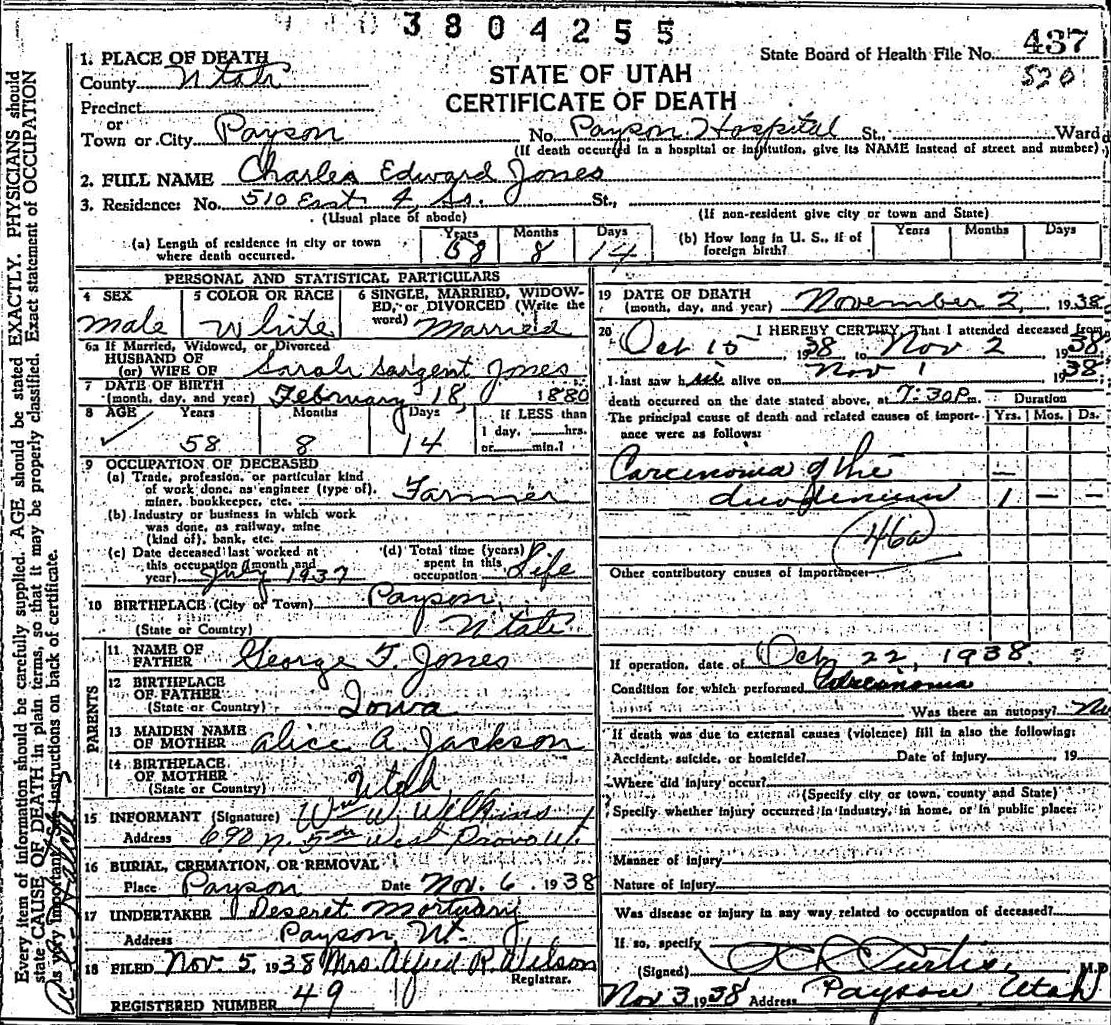 3804255
State Board of Health File No. 437
520
STATE OF UTAH
CERTIFICATE OF DEATH
1. PLACE OF DEATH
County Utah
Precinct
or
Town or City Payson No. Payson Hospital St., Ward
(If death occurred in a hospital or institution, give its NAME instead of street and number)
2. FULL NAME Charles Edward Jones
3. Residence: No. 510 East 4 So. St.,
(Usual place of abode) (If non-resident give city or town and State)
(a) Length of residence in city or town where death occurred. Years 58 Months 8 Days 14
(b) How long in U. S., if of foreign birth? Years Months Days
PERSONAL AND STATISTICAL PARTICULARS
4 SEX Male
5 COLOR OR RACE White
6 SINGLE, MARRIED, WIDOWED, or DIVORCED (Write the word) Married
6a If Married, Widowed, or Divorced
HUSBAND OF
(or) WIFE OF Sarah Sargent Jones
7 DATE OF BIRTH
(month, day, and year) February 18, 1880
8 AGE Years 58 Months 8 Days 14 If LESS than 1 day, hrs. or min.?
9 OCCUPATION OF DECEASED
(a) Trade, profession, or particular kind of work done, as engineer (type of), miner, bookkeeper, etc. Farmer
(b) Industry or business in which work was done, as railway, mine (kind of), bank, etc.
(c) Date deceased last worked at this occupation (month and year) July 1937
(d) Total time (years) spent in this occupation Life
10 BIRTHPLACE (City or Town) Payson,
(State or Country) Utah
PARENTS
11 NAME OF FATHER George T. Jones
12 BIRTHPLACE OF FATHER
(State or Country) Iowa
13 MAIDEN NAME OF MOTHER Alice A. Jackson
14 BIRTHPLACE OF MOTHER
(State or Country) Utah
15 INFORMANT (Signature) Wm W. Wilkins
Address 690 N. 5th West Provo Ut.
16 BURIAL, CREMATION, OR REMOVAL
Place Payson Date Nov. 6, 1938
17 UNDERTAKER Deseret Mortuary
Address Payson Ut.
18 FILED Nov. 5, 1938 Mrs. Alfred R. Wilson
Registrar.
REGISTERED NUMBER 49
19 DATE OF DEATH
(month, day, and year) November 2, 1938
20 I HEREBY CERTIFY, That I attended deceased from
Oct 15, 1938 to Nov 2 1938
I last saw him alive on Nov 1 1938
death occurred on the date stated above, at 7:30 P.m. Duration
The principal cause of death and related causes of importance were as follows: Yrs. Mos. Ds.
Carcinoma of the —
duodenum 1 — —
46a
Other contributory causes of importance:
If operation, date of Oct 22, 1938.
Condition for which performed Carcinoma
Was there an autopsy? No
If death was due to external causes (violence) fill in also the following:
Accident, suicide, or homicide? Date of injury, 19
Where did injury occur?
(Specify city or town, county and State)
Specify whether injury occurred in industry, in home, or in public place:
Manner of injury
Nature of injury
Was disease or injury in any way related to occupation of deceased?
If so, specify
(Signed) Curtis, M.D.
Nov 3 1938 Address Payson, Utah
Every item of information should be carefully supplied. AGE should be stated EXACTLY. PHYSICIANS should
state CAUSE OF DEATH in plain terms, so that it may be properly classified. Exact statement of OCCUPATION
is very important. See instructions on back of certificate.